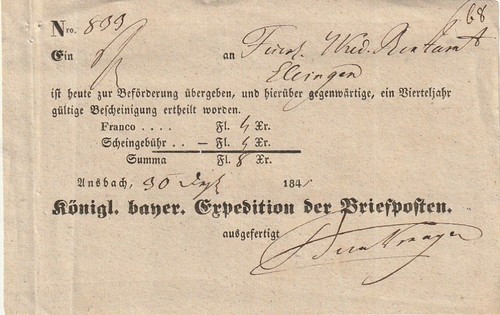 Nro. 833
68
Ein an Fürstl. Wred. Rentamt
Ellingen
ist heute zur Beförderung übergeben, und hierüber gegenwärtige, ein Vierteljahr
gültige Bescheinigung ertheilt worden.
Franco . . . . Fl. 4 Xr.
Scheingebühr . . — Fl. 4 Xr.
Summa Fl. 8 Xr.
Ansbach, 30 184
Königl. bayer. Expedition der Briefposten.
ausgefertigt